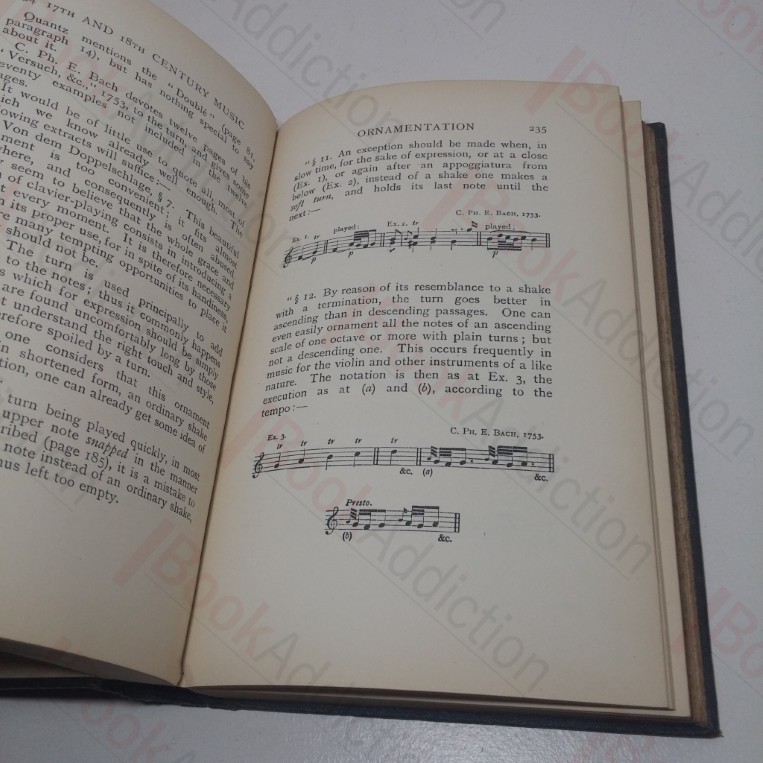 34 17TH AND 18TH CENTURY MUSIC
Quantz mentions the "Doublé" (page 81,
paragraph 14), but has nothing special to say
about it.
C. Ph. E. Bach devotes twelve pages of his
"Versuch, &c.," 1753, to the turn, and gives some
seventy examples not included
ages.
It would be of little use to quote all, most of
which we know already well enough. The
lowing extracts will suffice:—
Von dem Doppelschlage, § 7. This beautiful
ment is too convenient; it fits almost
where, and consequently is often abused.
y seem to believe that the whole grace and
of clavier-playing consists in introducing a
every moment. It is therefore necessary
n its proper use, for in spite of its handiness
re many tempting opportunities to place it
should not be.
The turn is used principally to add
to the notes; thus it commonly happens
s which for expression should be simply
are found uncomfortably long by those
t understand the right touch and style,
erefore spoiled by a turn.
one considers that this ornament
in shortened form, an ordinary shake
tion, one can already get some idea of
turn being played quickly, in most
upper note snapped in the manner
ribed (page 185), it is a mistake to
note instead of an ordinary shake,
us left too empty.
ORNAMENTATION 235
"§ 11. An exception should be made when, in
slow time, for the sake of expression, or at a close
(Ex. 1), or again after an appoggiatura from
below (Ex. 2), instead of a shake one makes a
soft turn, and holds its last note until the
next:—
C. PH. E. BACH, 1753.
Ex. 1. tr played: Ex. 2. tr played:
p p p
"§ 12. By reason of its resemblance to a shake
with a termination, the turn goes better in
ascending than in descending passages. One can
even easily ornament all the notes of an ascending
scale of one octave or more with plain turns; but
not a descending one. This occurs frequently in
music for the violin and other instruments of a like
nature. The notation is then as at Ex. 3, the
execution as at (a) and (b), according to the
tempo:—
Ex. 3. C. PH. E. BACH, 1753.
tr tr tr tr tr
&c. (a) &c.
Presto.
(b) &c.
BookAddiction